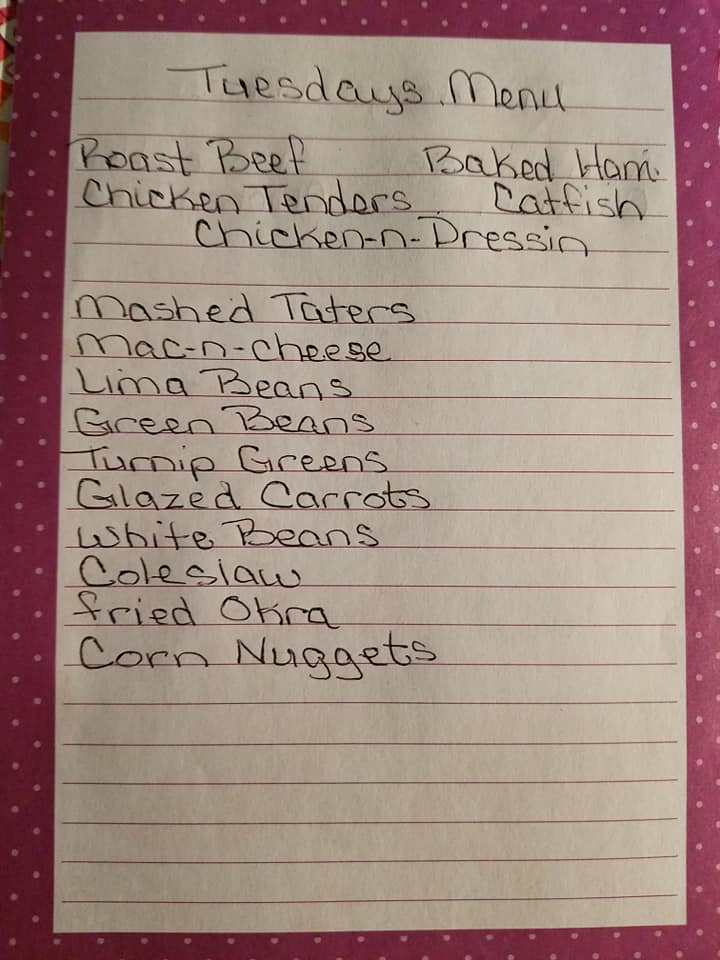 Tuesdays Menu
Roast Beef Baked Ham
Chicken Tenders Catfish
Chicken-n-Dressin
Mashed Taters
Mac-n-cheese
Lima Beans
Green Beans
Turnip Greens
Glazed Carrots
White Beans
Coleslaw
fried Okra
Corn Nuggets